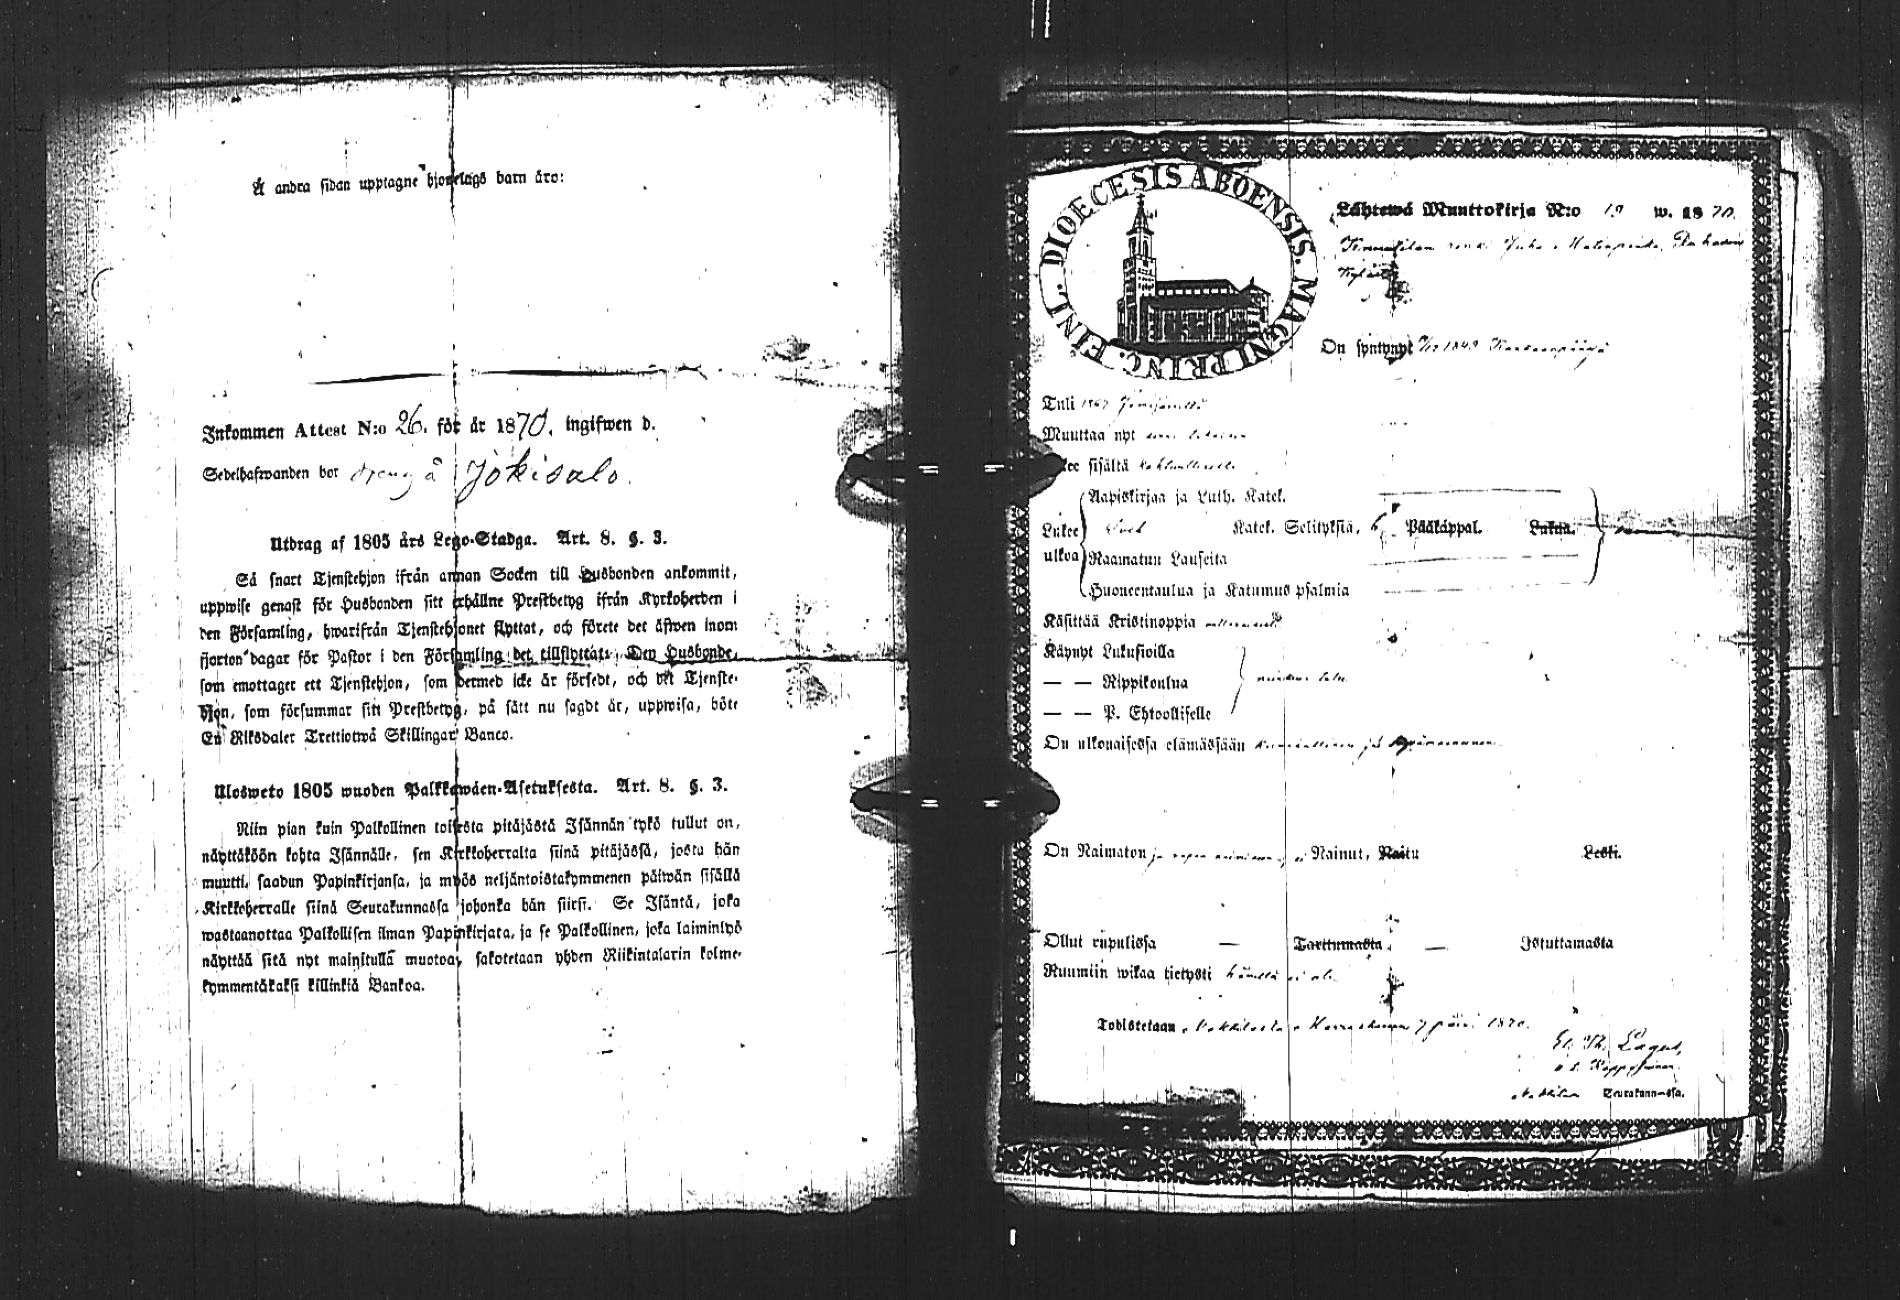 Å andra sidan upptagne hjonelags barn äro:
Inkommen Attest N:o 26. för år 1870. ingifwen d.
Sedelhafwanden bor dreng å Jokisalo.
Utdrag af 1805 års Lego-Stadga. Art. 8. §. 3.
Så snart Tjenstehjon ifrån annan Socken till Husbonden ankommit,
uppwise genast för Husbonden sitt erhållne Prestbetyg ifrån Kyrkoherden i
den Församling, hwarifrån Tjenstehjonet flyttat, och förete det äfwen inom
fjorton dagar för Pastor i den Församling det tillflyttats. Den Husbonde,
som emottager ett Tjenstehjon, som dermed icke är försedt, och det Tjenste-
hjon, som försummar sitt Prestbetyg, på sätt nu sagdt är, uppwisa, böte
En Riksdaler Trettiotwå Skillingar Banco.
Ulosweto 1805 wuoden Palkkawäen-Asetuksesta. Art. 8. §. 3.
Niin pian kuin Palkollinen toisesta pitäjästä Isännän tykö tullut on,
näyttäköön kohta Isännälle, sen Kirkkoherralta siinä pitäjässä, josta hän
muutti, saadun Papinkirjansa, ja myös neljäntoistakymmenen päiwän sisällä
Kirkkoherralle siinä Seurakunnassa johonka hän siirsi. Se Isäntä, joka
wastaanottaa Palkollisen ilman Papinkirjata, ja se Palkollinen, joka laiminlyö
näyttää sitä nyt mainitulla muotoa, sakotetaan yhden Riikintalarin kolme-
kymmentäkaksi killinkiä Bankoa.
DIOECESIS ABOENSIS. MAGNI PRINC. FINL.
Lähtewä Muuttokirja N:o 19 w. 1870.
renki Juha
Kylästä
On syntynyt 1849
Tuli 1867
Muuttaa nyt
Lukee sisältä kohtuullisesti
Aapiskirjaa ja Luth. Katek.
Lukee ulkoa Katek. Selityksiä, 6 Pääkappal. Lukua.
Raamatun Lauseita
Huoneentaulua ja Katumus psalmia
Käsittää Kristinoppia
Käynyt Lukusioilla
— — Rippikoulua
— — P. Ehtoollisella
On ulkonaisessa elämässään kunniallinen ja
On Naimaton ja Nainut, Naitu Leski.
Ollut rupulissa — Tarttumasta. — Istuttamasta
Ruumiin wikaa tietysti hänellä ei ole.
Todistetaan Nakkilasta Marraskuun 7 päiv. 1870.
Lagus,
Nakkilan Seurakunnassa.